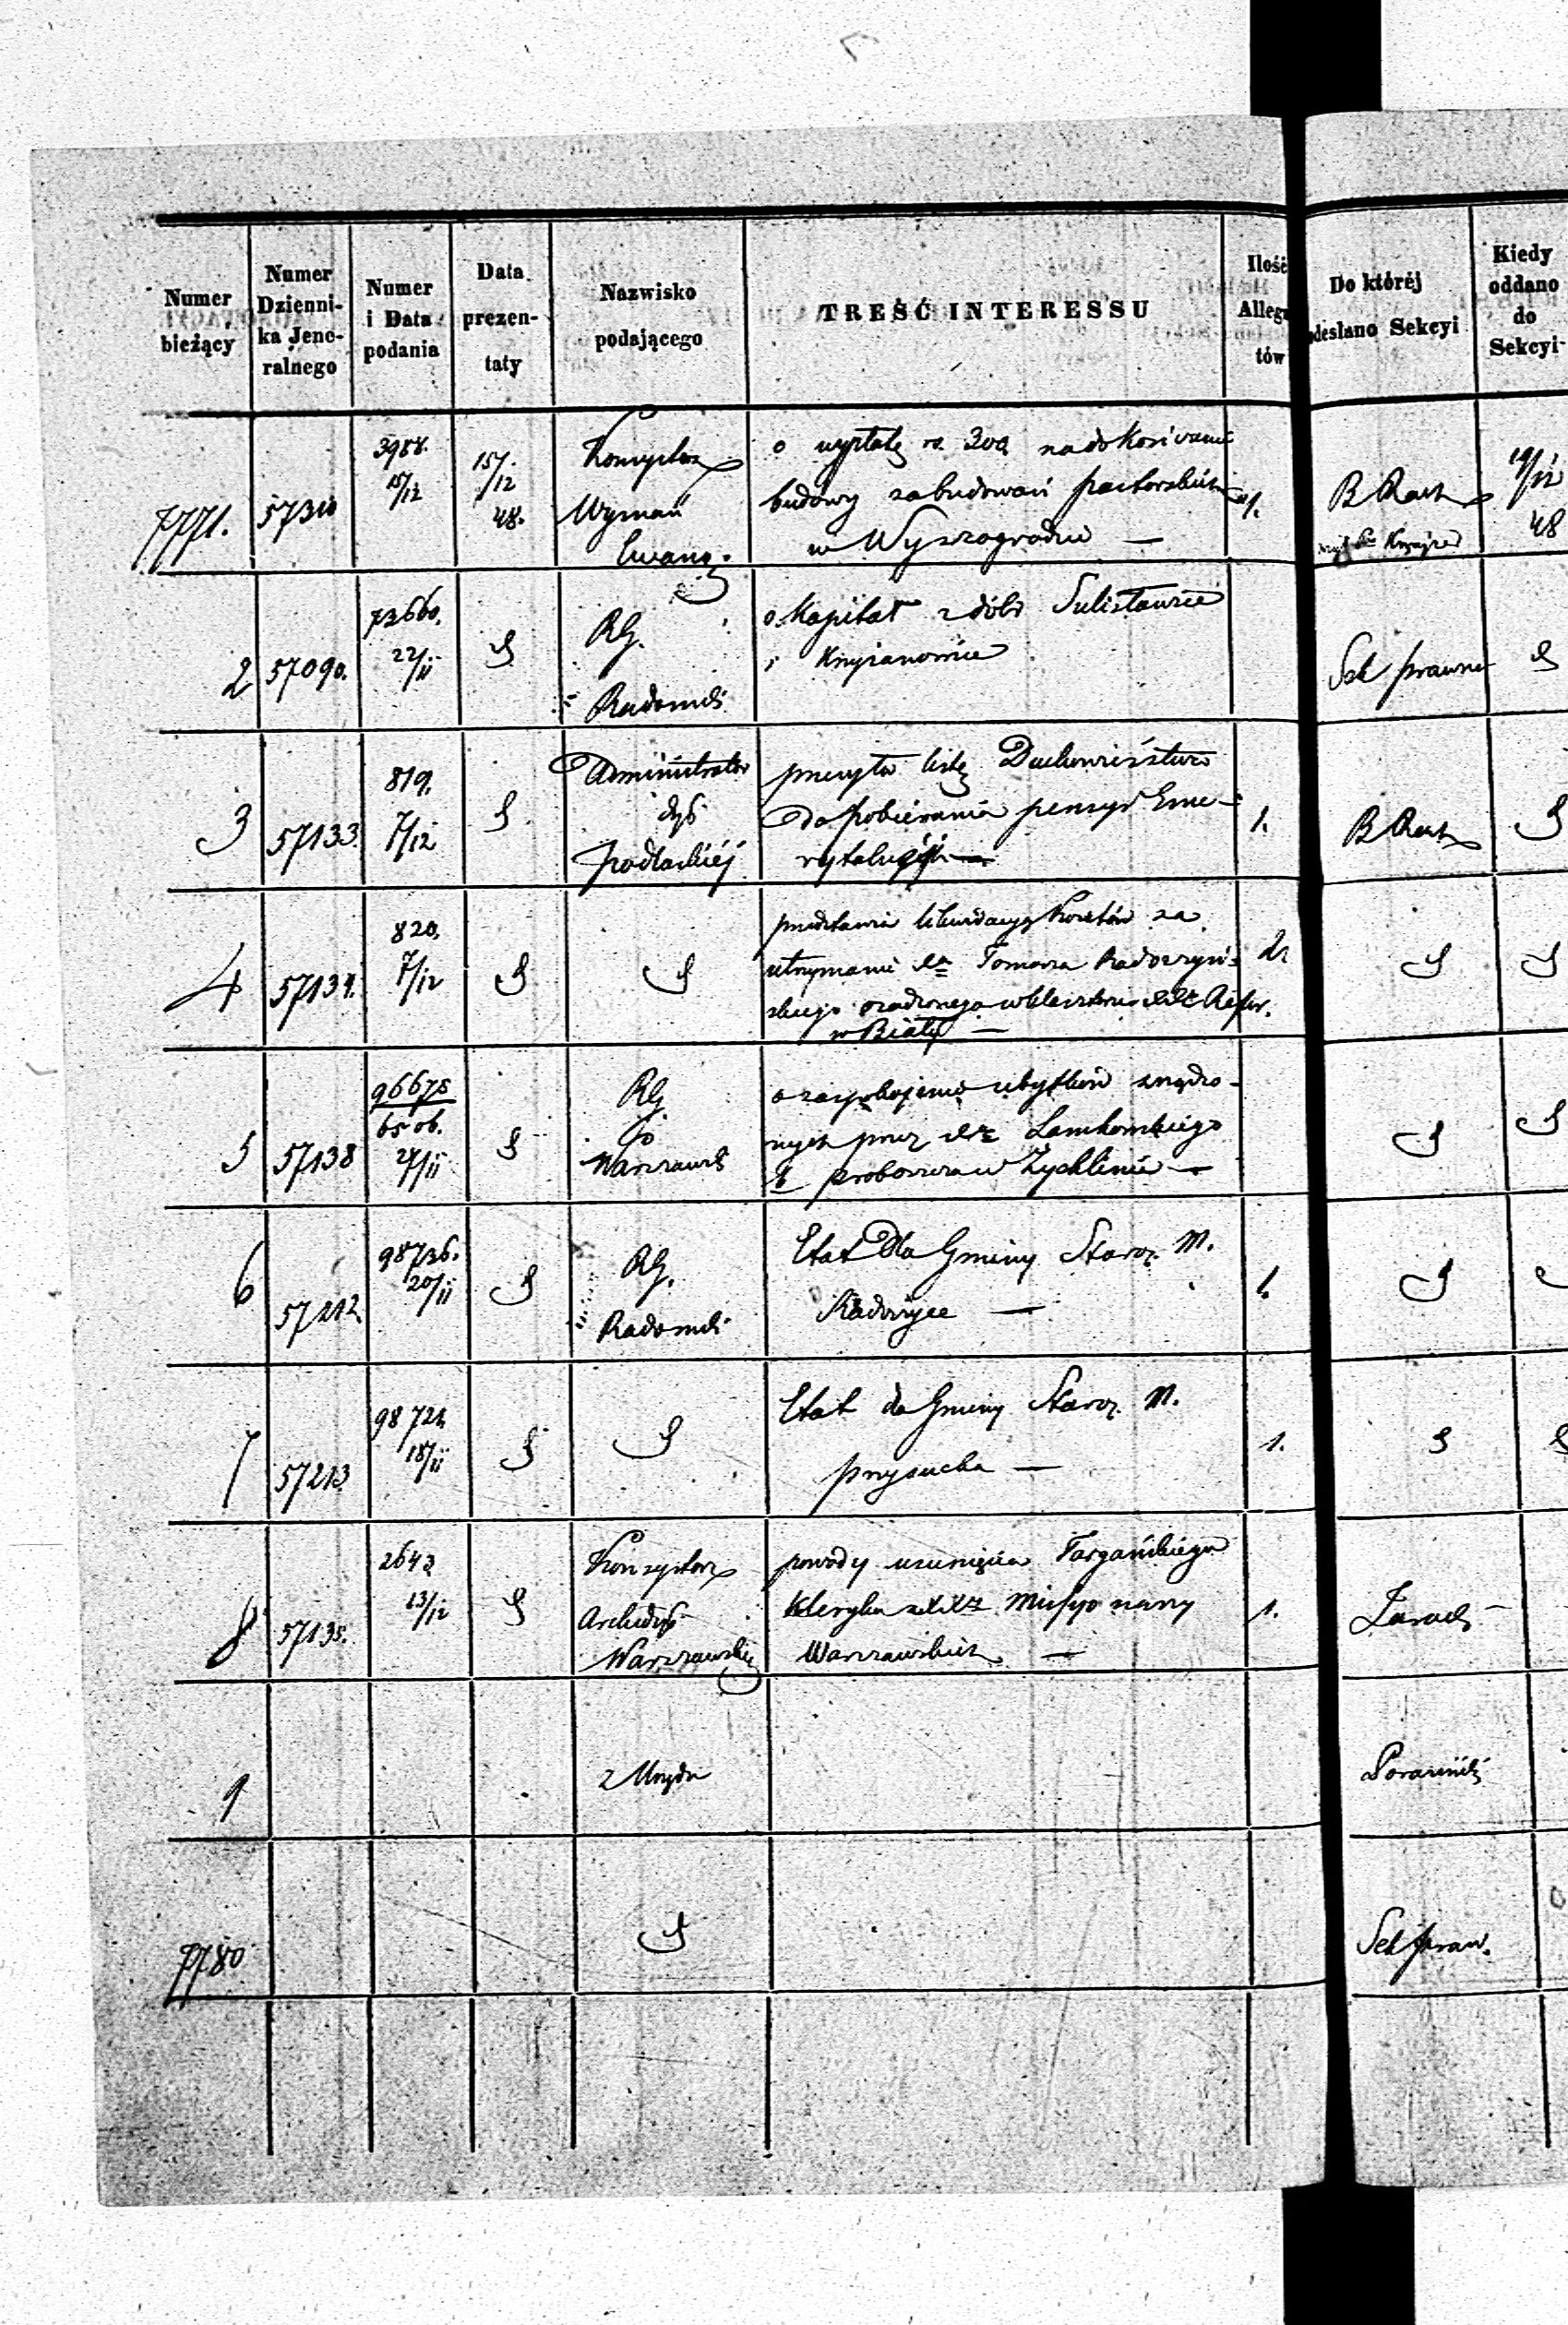 Numer bieżący
Numer Dzienni-
ka Jene-
ralnego
Numer i Data podania
Data prezen-
taty
Nazwisko podającego
TREŚĆ INTERESSU
Ilość Allega
tów
Do któréj
odesłano Sekcyi
Kiedy oddano do Sekcyi
7771.
57310
3988.
15/12
15/12
48.
Konsystorz
Wyznań
Ewang.
o wypłatę rs. 300 na dokończenie
budowy zabudowań pastorskich
w Wyszogrodzie —
1.
B Rach
19/12
48
2
57090.
73660.
22/11
RG.
Radomski
o kapitał z dóbr Sulisławice
i Knyszanowice
Sek prawna
3
57133
819.
7/12
Administrator
dyć
podlaskiéj
przesyła listę Duchowieństwa
do pobierania pensyi Eme-
rytalnych —
1.
B Rach
4
57134.
820.
7/12
przedstawia likwidacyę kosztów za
utrzymanie Xa Tomasza Radoszyń-
skiego osadzonego w klasztorze XX Refor.
w Biały —
2
5
57138
96678
6506.
27/11
RG
Go
Warszaws
o zaspokojenie ubytków zrządzo-
nych przez Xa Lamkowskiego
b proboszcza w Żychlinie —
6
57212
98736.
20/11
RG.
Radomski
Etat Dla Gminy Staroz. M.
Radoszyce —
1.
7
57213
98724
18/11
Etat dla Gminy Staroz. M.
Przysucha —
1.
8
57135.
2643
13/12
Konsystorz
Archidyć
Warszawskiej
powody usunięcia Targańskiego
kleryka z XX Missyonarzy
Warszawskich —
1.
9
z Urzędu
7780
Sek praw.